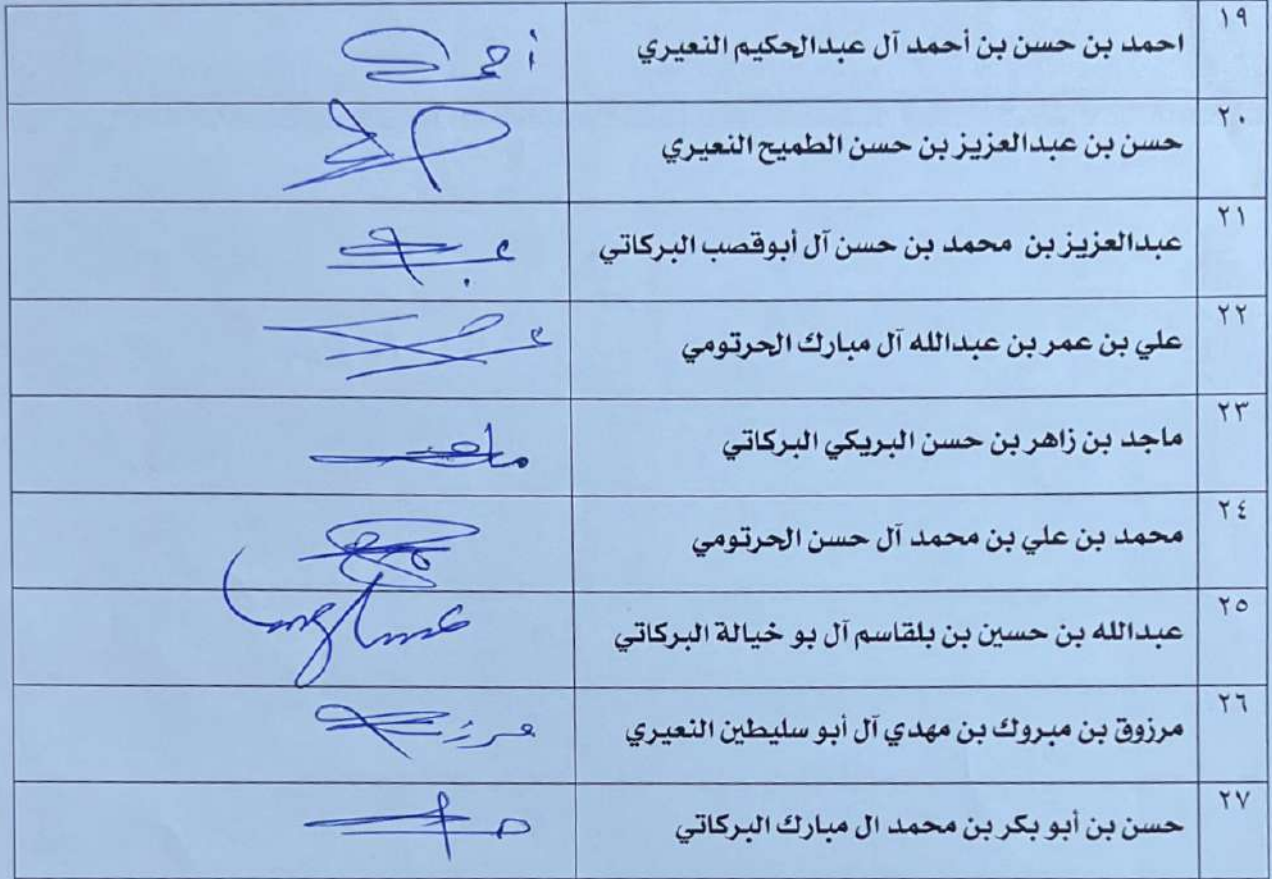 ١٩ احمد بن حسن بن أحمد آل عبدالحكيم النعيري أحمد
٢٠ حسن بن عبدالعزيز بن حسن الطميح النعيري
٢١ عبدالعزيز بن محمد بن حسن آل أبوقصب البركاتي
٢٢ علي بن عمر بن عبدالله آل مبارك الحرتومي
٢٣ ماجد بن زاهر بن حسن البريكي البركاتي ماجد
٢٤ محمد بن علي بن محمد آل حسن الحرتومي
٢٥ عبدالله بن حسين بن بلقاسم آل بو خيالة البركاتي
٢٦ مرزوق بن مبروك بن مهدي آل أبو سليطين النعيري
٢٧ حسن بن أبو بكر بن محمد ال مبارك البركاتي